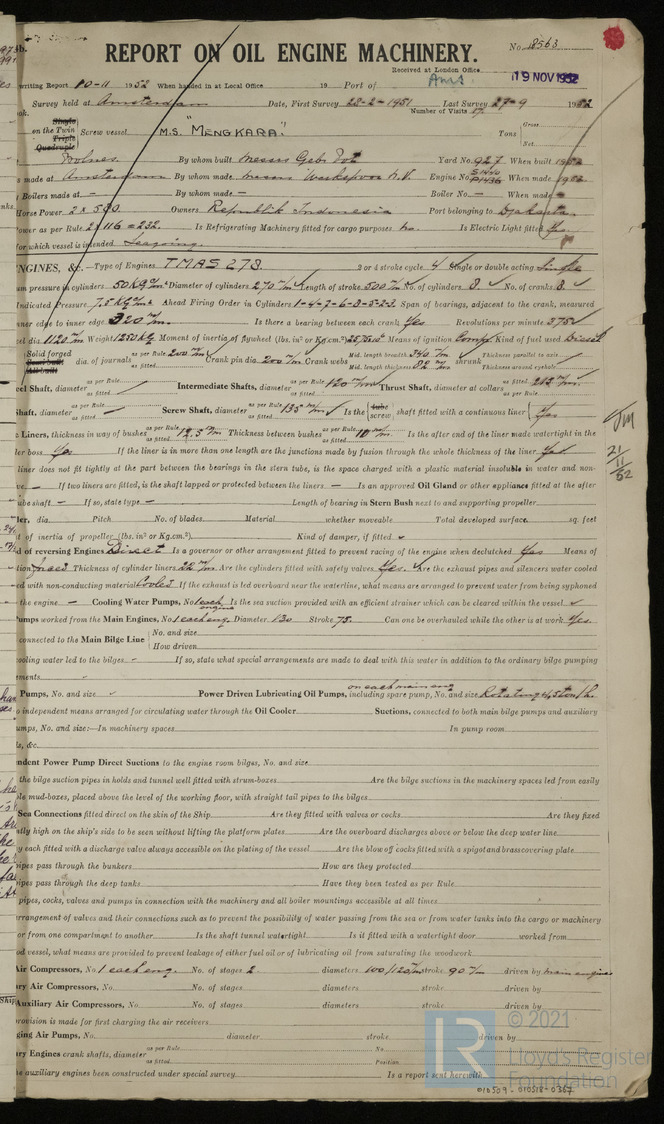 REPORT ON OIL ENGINE MACHINERY.
No. 18563
Received at London Office
19 NOV 1952
writing Report 10-11 1952 When handed in at Local Office 19 Port of Ams
Survey held at Amsterdam Date, First Survey 28-2-1951 Last Survey 27-9 1952
Number of Visits
on the Single Twin Triple Quadruple Screw vessel M.S. "MENGKARA" Tons Gross Net
By whom built Messrs Yard No. 927 When built 1952
made at Amsterdam By whom made Messrs Werkspoor N.V. Engine No. When made 1952
Boilers made at — By whom made — Boiler No. — When made —
Horse Power 2 x 580. Owners Republik Indonesia Port belonging to Djakarta
Power as per Rule 2 x 116 = 232. Is Refrigerating Machinery fitted for cargo purposes no. Is Electric Light fitted Yes
for which vessel is intended. Seagoing.
ENGINES, &c. —Type of Engines TMAS 278. 2 or 4 stroke cycle 4 Single or double acting Single
pressure in cylinders 50 KG/cm² Diameter of cylinders 270 m/m Length of stroke 500 m/m No. of cylinders 8 No. of cranks 8
Indicated Pressure 7,5 KG/cm² Ahead Firing Order in Cylinders 1-4-7-6-8-5-2-3 Span of bearings, adjacent to the crank, measured
inner edge to inner edge 320 m/m Is there a bearing between each crank Yes Revolutions per minute 375
dia. 1120 m/m Weight 1250 KG Moment of inertia of flywheel (lbs. in² or Kg.cm.²) Means of ignition Comp. Kind of fuel used Diesel
Solid forged dia. of journals as per Rule as fitted 200 m/m Crank pin dia. 200 m/m Crank webs Mid. length breadth 340 m/m Mid. length thickness shrunk Thickness parallel to axis Thickness around eyehole
Shaft, diameter as per Rule as fitted Intermediate Shafts, diameter as per Rule as fitted 120 m/m Thrust Shaft, diameter at collars as per Rule as fitted
Shaft, diameter as per Rule as fitted Screw Shaft, diameter as per Rule as fitted 135 m/m Is the tube screw shaft fitted with a continuous liner Yes
Liners, thickness in way of bushes as per Rule as fitted 12.5 m/m Thickness between bushes as per Rule as fitted 10 m/m Is the after end of the liner made watertight in the
boss Yes If the liner is in more than one length are the junctions made by fusion through the whole thickness of the liner Yes
liner does not fit tightly at the part between the bearings in the stern tube, is the space charged with a plastic material insoluble in water and non-
— If two liners are fitted, is the shaft lapped or protected between the liners — Is an approved Oil Gland or other appliance fitted at the after
tube shaft — If so, state type — Length of bearing in Stern Bush next to and supporting propeller
dia. Pitch No. of blades Material whether moveable Total developed surface sq. feet
of inertia of propeller (lbs. in² or Kg.cm.²) Kind of damper, if fitted
of reversing Engines Direct Is a governor or other arrangement fitted to prevent racing of the engine when declutched Yes Means of
forced Thickness of cylinder liners 22 m/m Are the cylinders fitted with safety valves Yes. Are the exhaust pipes and silencers water cooled
with non-conducting material Cooled If the exhaust is led overboard near the waterline, what means are arranged to prevent water from being syphoned
the engine — Cooling Water Pumps, No 1 each engine Is the sea suction provided with an efficient strainer which can be cleared within the vessel
worked from the Main Engines, No 1 each eng. Diameter 130 Stroke 75. Can one be overhauled while the other is at work Yes.
connected to the Main Bilge Line No. and size How driven
cooling water led to the bilges If so, state what special arrangements are made to deal with this water in addition to the ordinary bilge pumping
Pumps, No. and size Power Driven Lubricating Oil Pumps, including spare pump, No. and size on each main eng Rotating 4,5 ton/h.
independent means arranged for circulating water through the Oil Cooler Suctions, connected to both main bilge pumps and auxiliary
No. and size:—In machinery spaces In pump room
&c.
Power Pump Direct Suctions to the engine room bilges, No. and size
the bilge suction pipes in holds and tunnel well fitted with strum-boxes Are the bilge suctions in the machinery spaces led from easily
mud-boxes, placed above the level of the working floor, with straight tail pipes to the bilges
Sea Connections fitted direct on the skin of the Ship Are they fitted with valves or cocks Are they fixed
high on the ship's side to be seen without lifting the platform plates Are the overboard discharges above or below the deep water line
each fitted with a discharge valve always accessible on the plating of the vessel Are the blow off cocks fitted with a spigot and brass covering plate
pipes pass through the bunkers How are they protected
pipes pass through the deep tanks Have they been tested as per Rule
pipes, cocks, valves and pumps in connection with the machinery and all boiler mountings accessible at all times
arrangement of valves and their connections such as to prevent the possibility of water passing from the sea or from water tanks into the cargo or machinery
or from one compartment to another Is the shaft tunnel watertight Is it fitted with a watertight door worked from
vessel, what means are provided to prevent leakage of either fuel oil or of lubricating oil from saturating the woodwork
Air Compressors, No. 1 each eng. No. of stages 2 diameters 100/120 m/m stroke 90 m/m driven by main engines
Air Compressors, No. No. of stages diameters stroke driven by
Auxiliary Air Compressors, No. No. of stages diameters stroke driven by
provision is made for first charging the air receivers
Air Pumps, No. diameter stroke driven by
Engines crank shafts, diameter as per Rule as fitted No. Position
auxiliary engines been constructed under special survey Is a report sent herewith
21/11/52
© 2021
Lloyd's Register
Foundation
010509-010518-0367